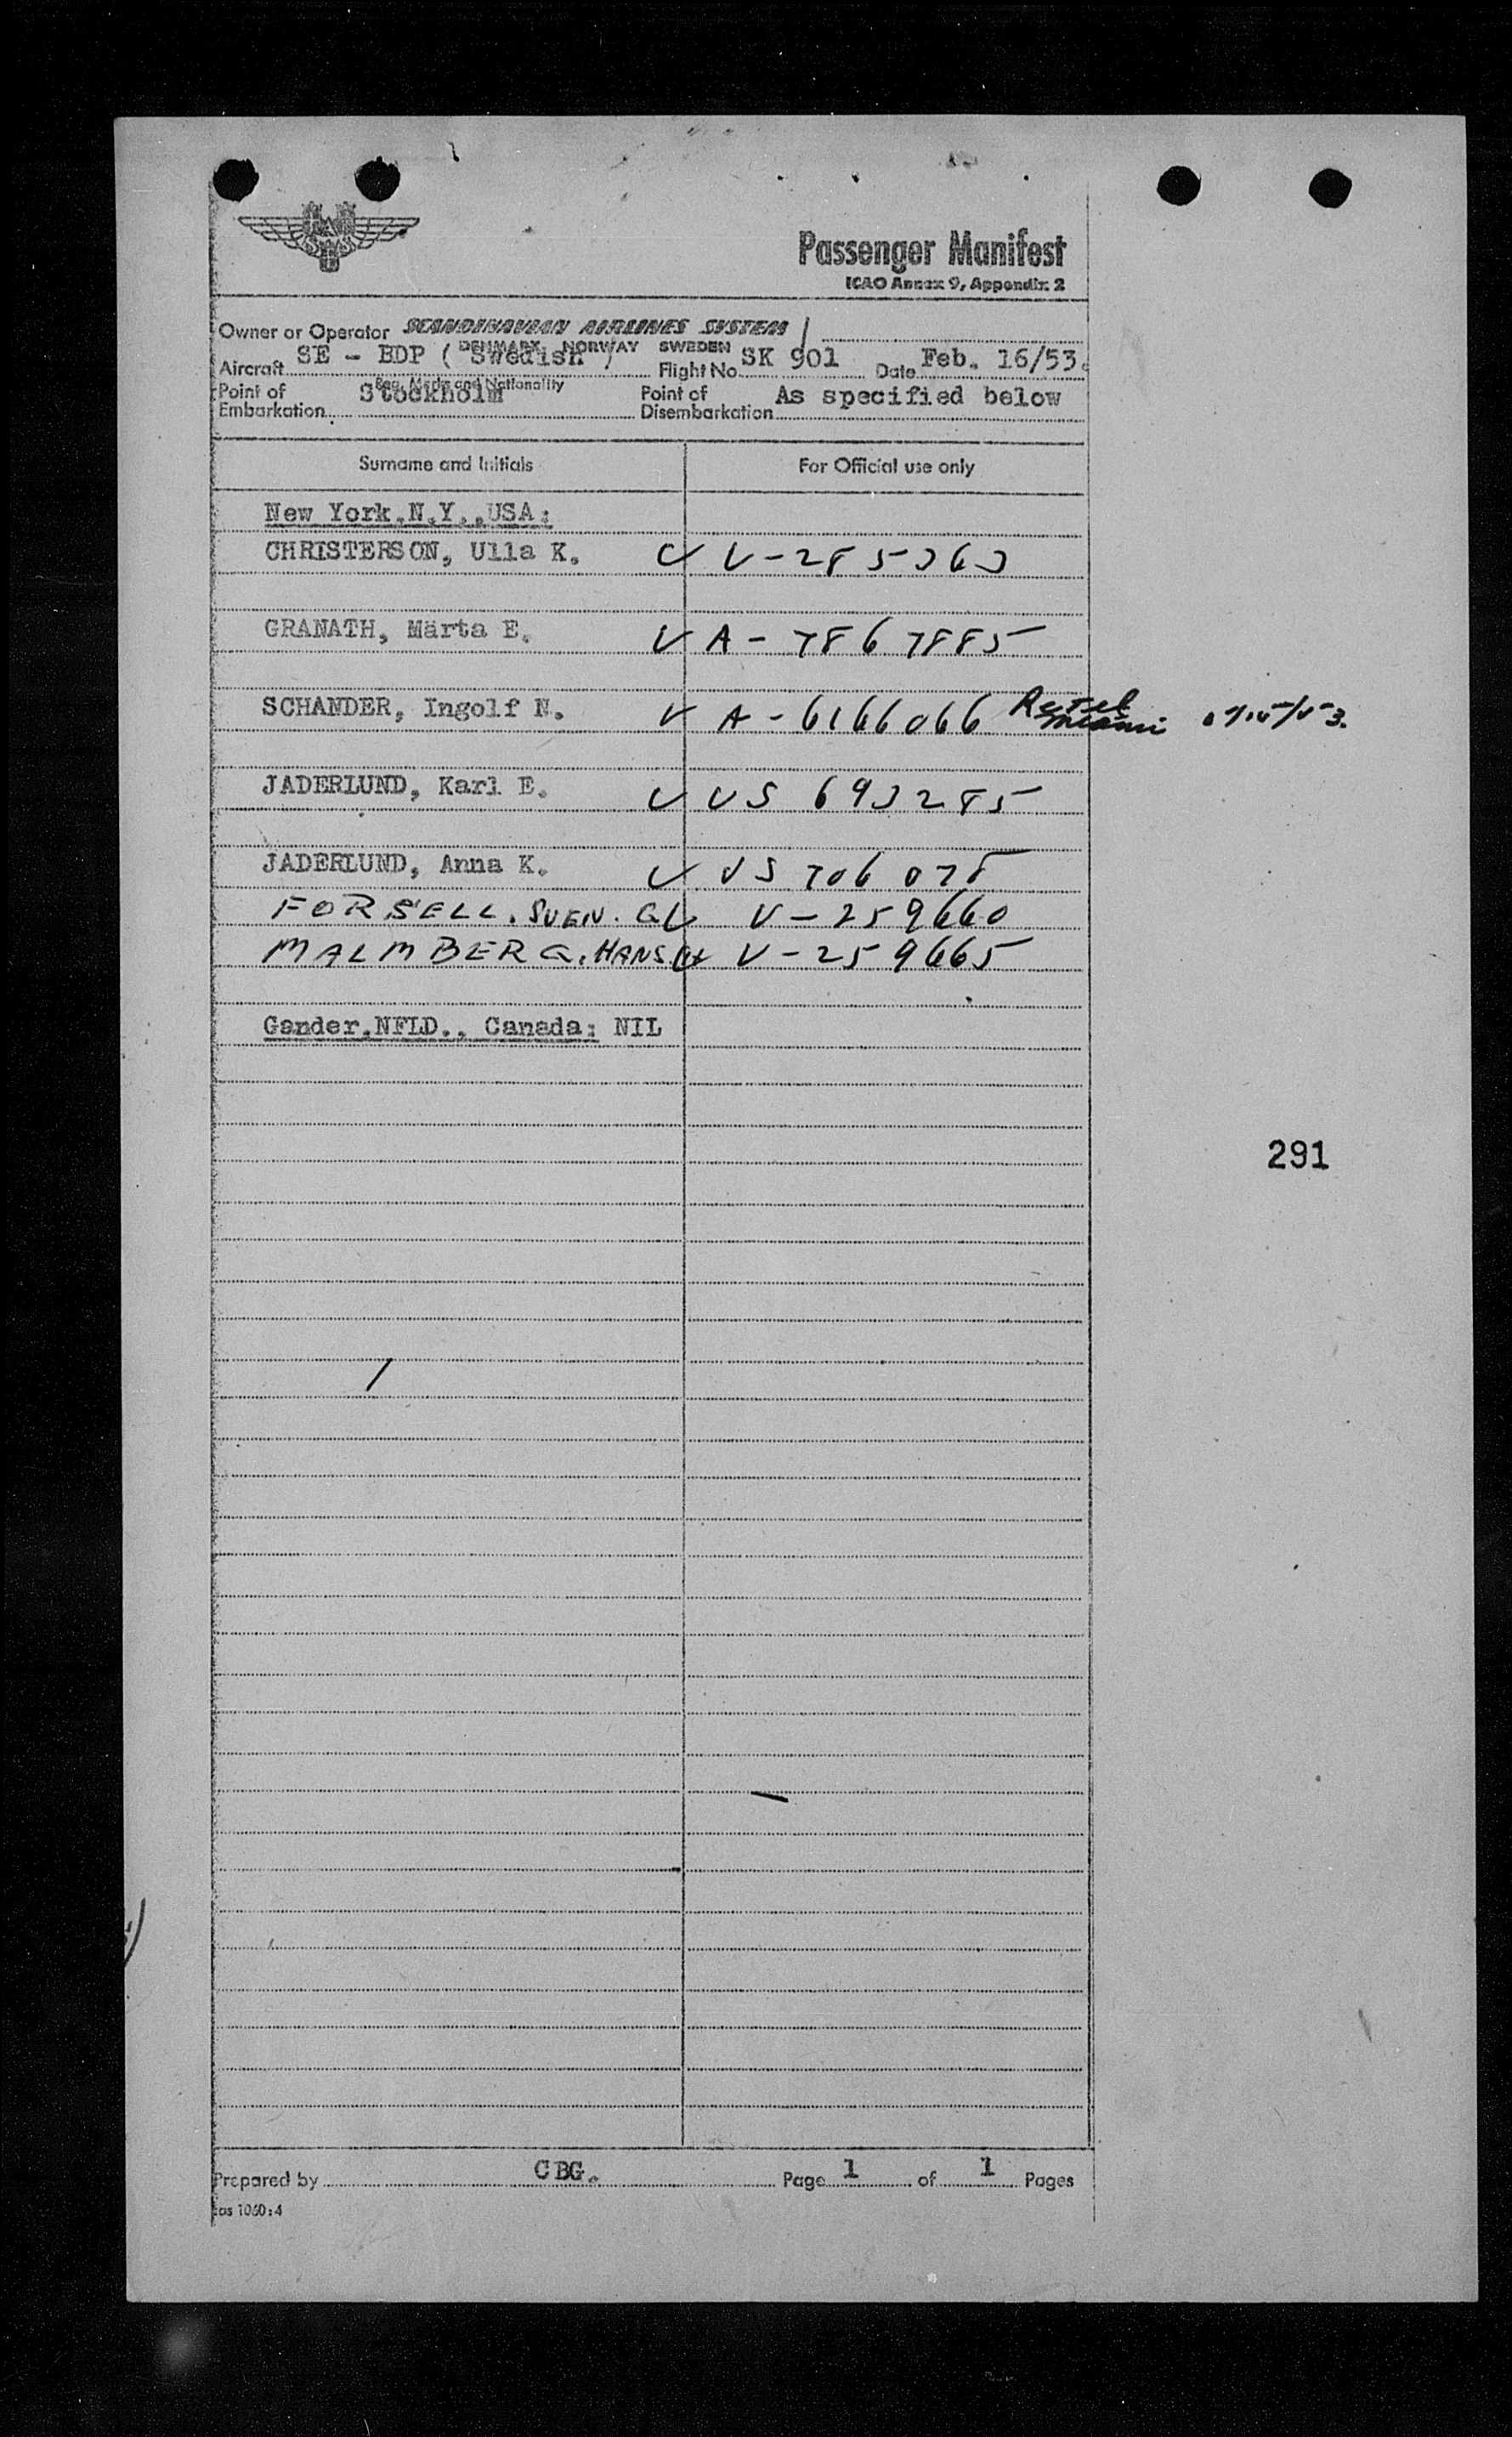 Passenger Manifest
ICAO Annex 9, Appendix 2
Owner or Operator SCANDINAVIAN AIRLINES SYSTEM
DENMARK NORWAY SWEDEN
Aircraft SE - BDP ( Swedish ) Flight No. SK 901 Date Feb. 16/53.
Reg. Marks and Nationality
Point of Embarkation Stockholm Point of Disembarkation As specified below
Surname and Initials For Official use only
New York.N.Y.,USA:
CHRISTERSON, Ulla K. V-285363
GRANATH, Märta E. A-7867885
SCHANDER, Ingolf N. A-6166066 Miami
JADERLUND, Karl E. VS 693285
JADERLUND, Anna K. VS 706078
FORSELL. SVEN. G V-259660
MALMBERG. HANS. V-259665
Gander.NFLD., Canada: NIL
291
Prepared by CBG. Page 1 of 1 Pages
sas 1060:4